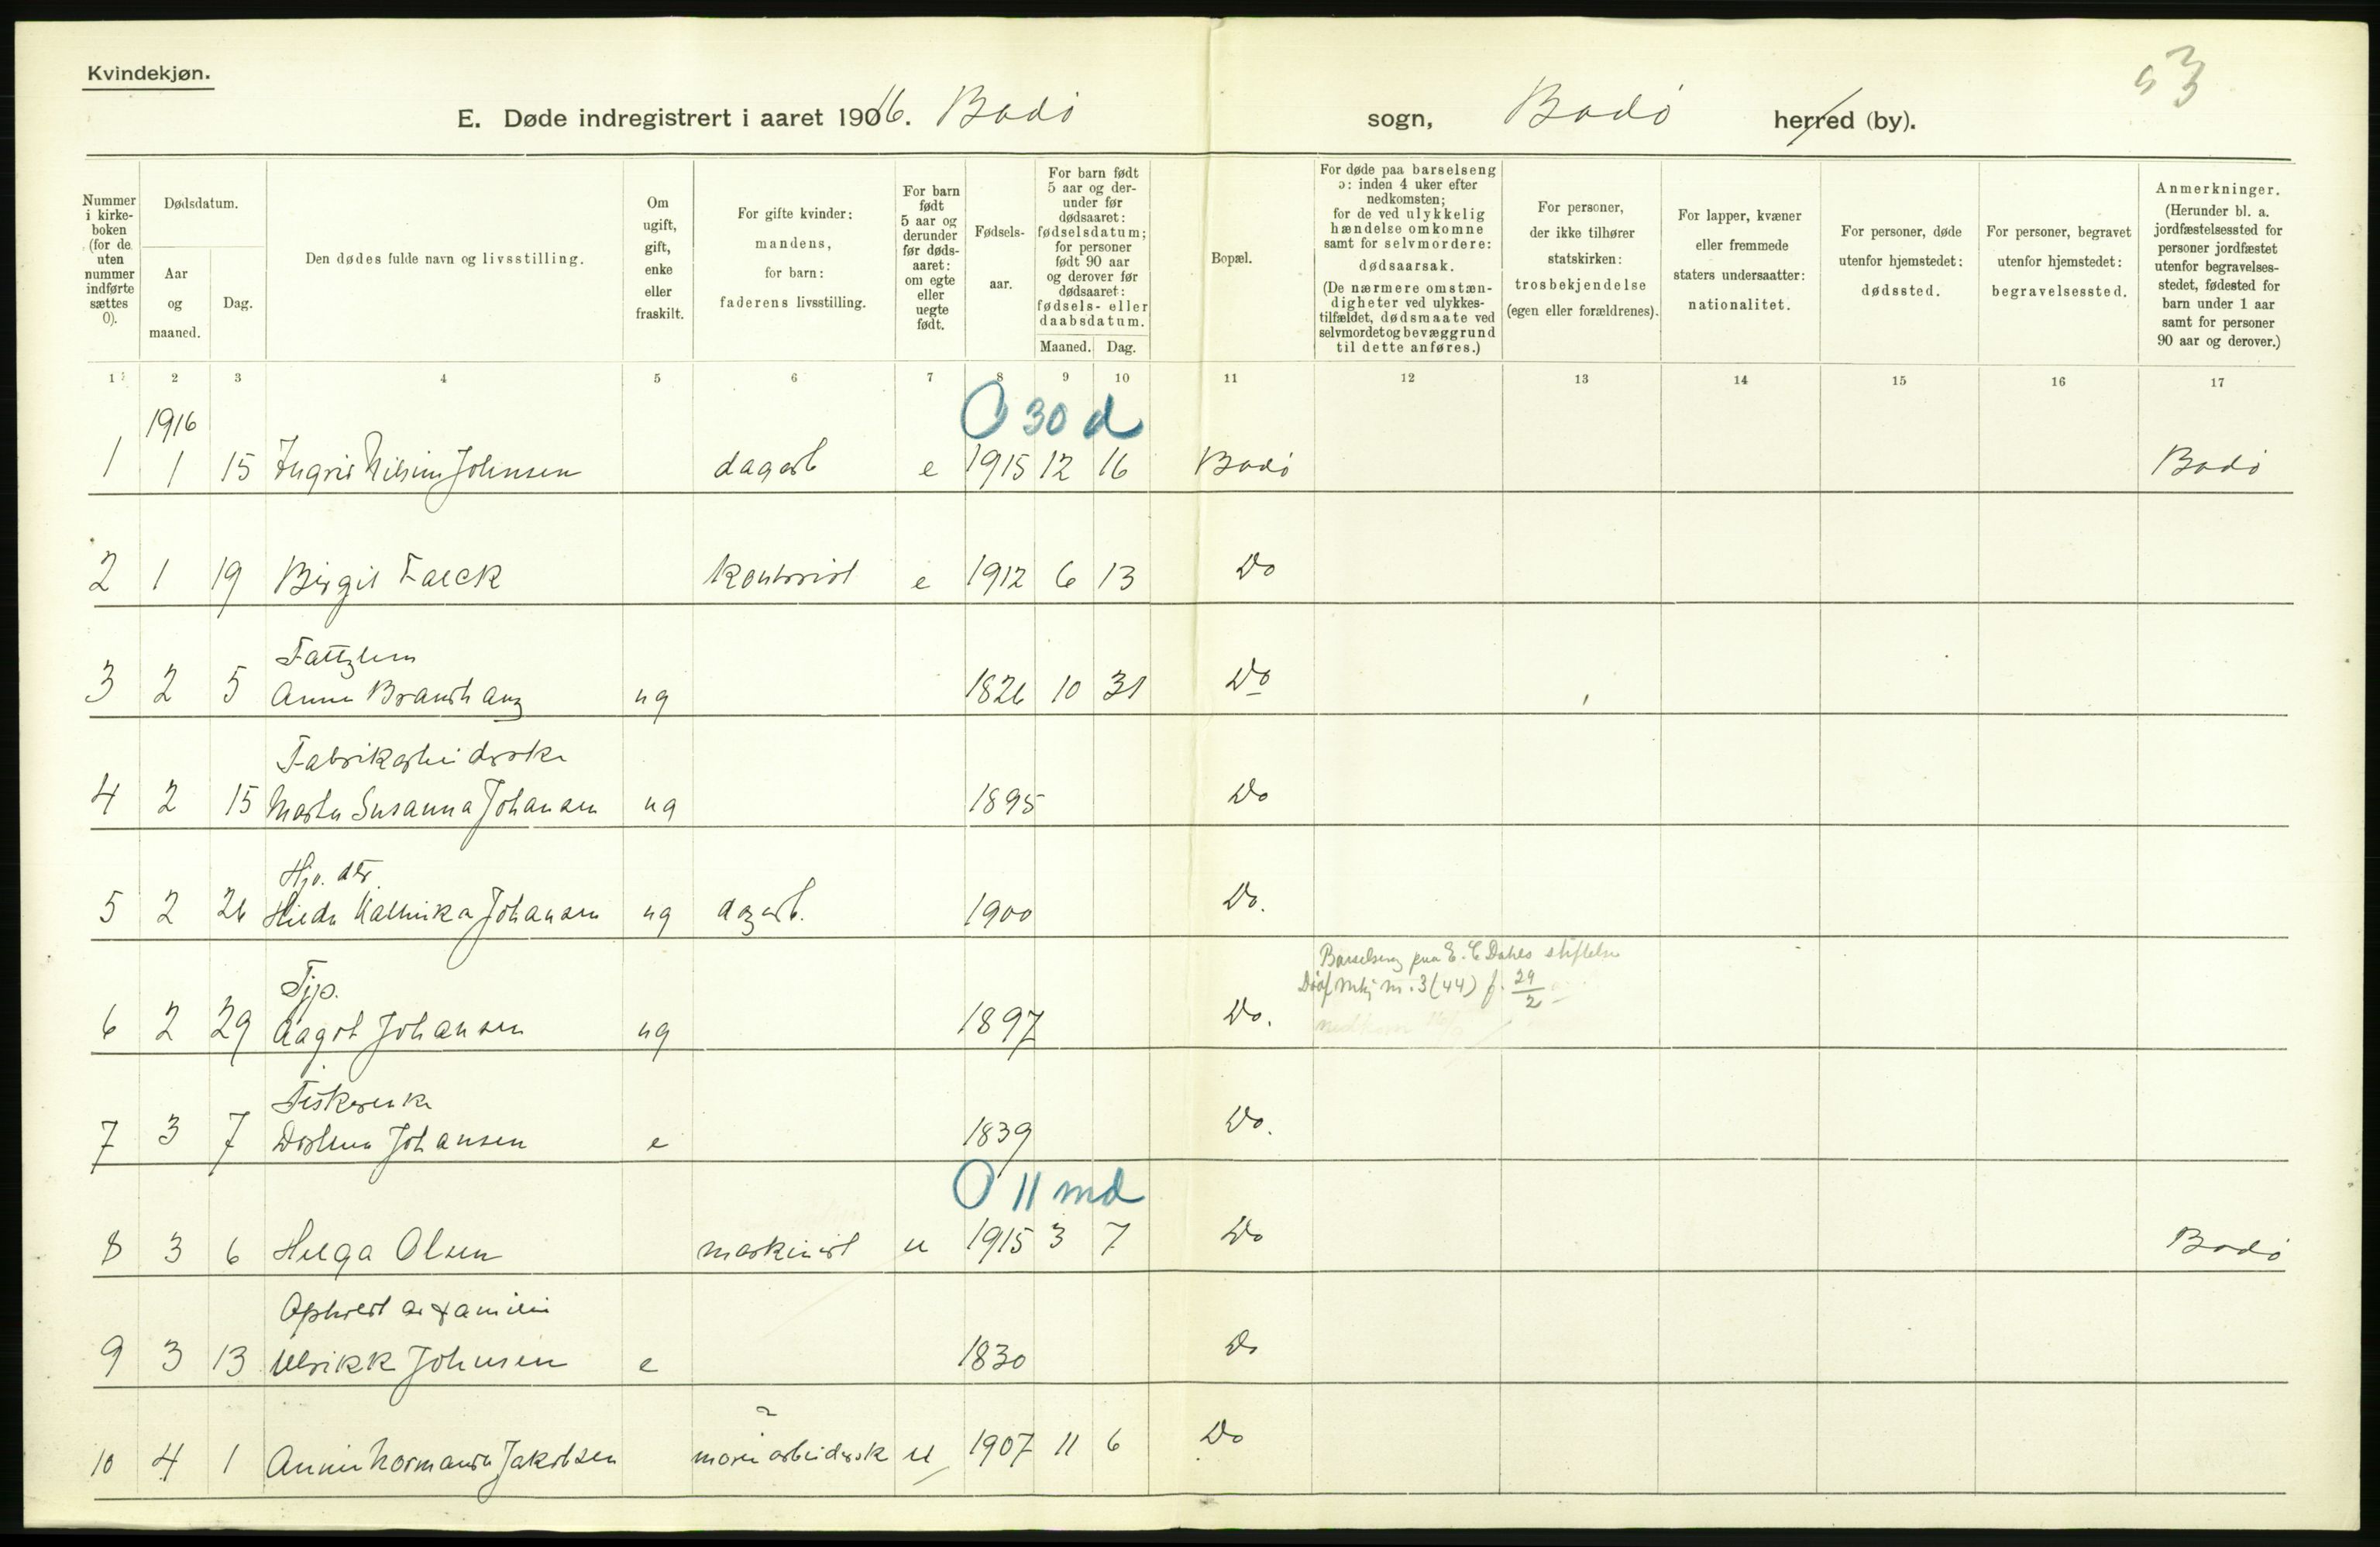 Kvindekjøn.
53
E. Døde indregistrert i aaret 1916. Bodö sogn, Bodö herred (by).
Nummer i kirkeboken (for de uten nummer indførte sættes 0).
Dødsdatum.
Aar og maaned.
Dag.
Den dødes fulde navn og livsstilling.
Om ugift, gift, enke eller fraskilt.
For gifte kvinder: mandens, for barn: faderens livsstilling.
For barn født 5 aar og derunder før dødsaaret: om egte eller uegte født.
Fødselsaar.
For barn født 5 aar og derunder før dødsaaret: fødselsdatum; for personer født 90 aar og derover før dødsaaret: fødsels- eller daabsdatum.
Maaned. Dag.
Bopæl.
For døde paa barselseng ɔ: inden 4 uker efter nedkomsten; for de ved ulykkelig hændelse omkomne samt for selvmordere: dødsaarsak. (De nærmere omstændigheter ved ulykkestilfældet, dødsmaate ved selvmordet og bevæggrund til dette anføres.)
For personer, der ikke tilhører statskirken: trosbekjendelse (egen eller forældrenes).
For lapper, kvæner eller fremmede staters undersaatter: nationalitet.
For personer, døde utenfor hjemstedet: dødssted.
For personer, begravet utenfor hjemstedet: begravelsessted.
Anmerkninger. (Herunder bl. a. jordfæstelsessted for personer jordfæstet utenfor begravelsesstedet, fødested for barn under 1 aar samt for personer 90 aar og derover.)
1 2 3 4 5 6 7 8 9 10 11 12 13 14 15 16 17
1916
0 30 d
1 1 15 Ingrid Johnsen dagarb e 1915 12 16 Bodö Bodö
2 1 19 Birgit Falck Kontorist e 1912 6 13 Do
3 2 5 Anna ug 1826 10 31 Do
Fabrikarbeiderske
4 2 15 Marta Susanna Johansen ug 1895 Do
Hjv. dtr.
5 2 26 Hilda Johansen ug dagarb. 1900 Do.
Barselseng paa E. C Dahls stiftelse
Tjp. 3 (44) f. 29/2
6 2 29 Aagot Johansen ug 1897 Do.
Fiskerenke
7 3 7 Dorthea Johansen e 1839 Do.
0 11 md
8 3 6 Helga Olsen maskinist u 1915 3 7 Do Bodö
Ophold av familie
9 3 13 Ulrikk Johnsen e 1830 Do
10 4 1 Jakobsen arbeidersk u 1907 11 6 Do